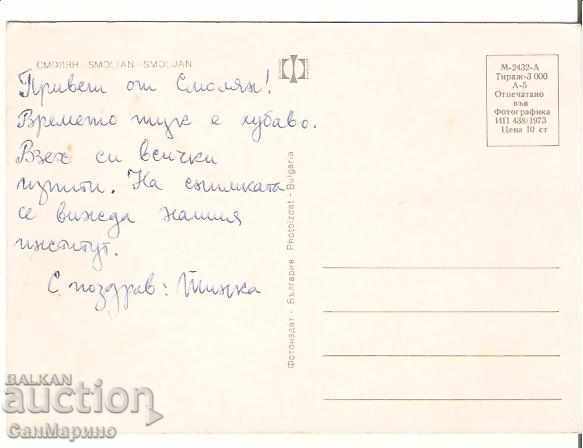 СМОЛЯН - SMOLIAN - SMOLJAN
Привет от Смолян!
Времето тук е хубаво.
Взех си всички
изпити. На снимката
се вижда нашия
институт.
С поздрав: Тинка
Фотоиздат - България Photoizdat - Bulgaria
М-2432-А
Тираж-3 000
А-5
Отпечатано
във
Фотографика
ИП 438/1973
Цена 10 ст
BALKAN
auction
СанМарино